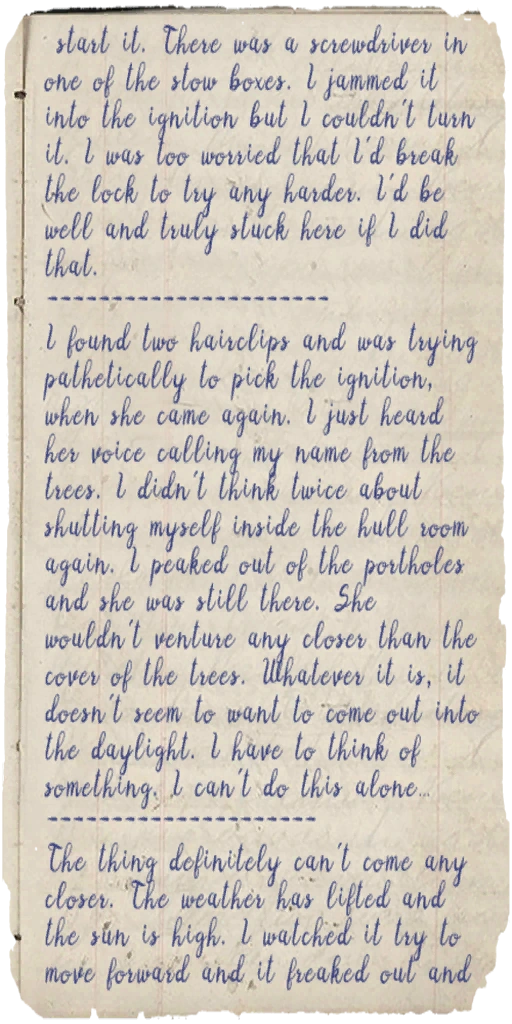 start it. There was a screwdriver in
one of the stow boxes. I jammed it
into the ignition but I couldn't turn
it. I was too worried that I'd break
the lock to try any harder. I'd be
well and truly stuck here if I did
that.
----------------------
I found two hairclips and was trying
pathetically to pick the ignition,
when she came again. I just heard
her voice calling my name from the
trees. I didn't think twice about
shutting myself inside the hull room
again. I peaked out of the portholes
and she was still there. She
wouldn't venture any closer than the
cover of the trees. Whatever it is, it
doesn't seem to want to come out into
the daylight. I have to think of
something. I can't do this alone...
---------------------
The thing definitely can't come any
closer. The weather has lifted and
the sun is high. I watched it try to
move forward and it freaked out and